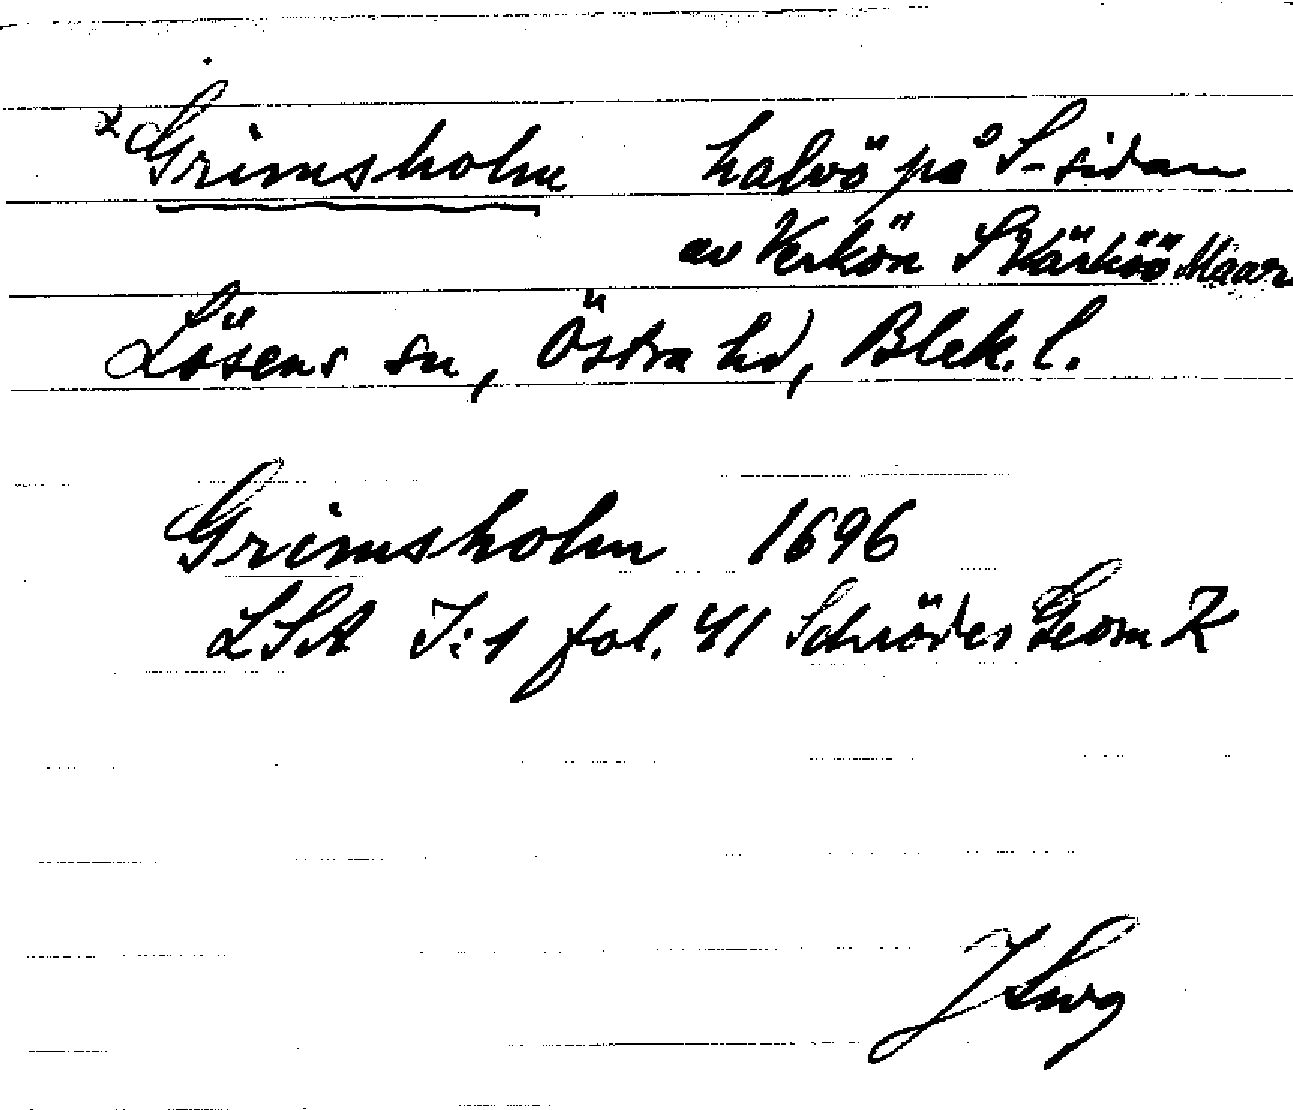 x Grimsholm halvö på S-sidan
av Verkön
Lösens sn, Östra hd, Blek. l.
Grimsholm 1696
LSA I:1 fol. 41 Schröders Geom K